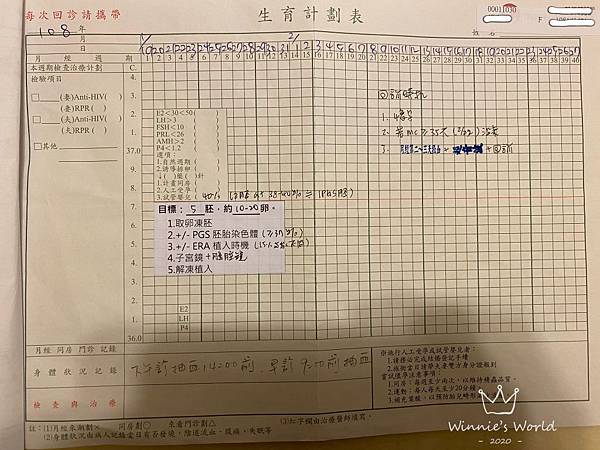 每次回診請攜帶
生育計劃表
00011030
F
108年
月
日
19 20 21 22 23 24 25 26 27 28 29 30 31 1 2 3 4 5 6 7 8 9 10 11 12
月經週期
C. 1 2 3 4 5 6 7 8 9 10 11 12 13 14 15 16 17 18 19 20 21 22 23 24 25 26 27 28 29 30 31 32 33 34 35 36 37 38 39 40
本週期檢查治療計劃
檢驗項目
(妻)Anti-HIV( )
(妻)RPR( )
(夫)Anti-HIV( )
(夫)RPR( )
其他
37.0
36.0
E2<30<50
LH>3
FSH<10
PRL<26
AMH>2
P4<1.2
選項:
1.自然週期(
2.誘導排卵(
1.計畫同房(
2.人工受孕(
3.試管嬰兒(
目標: 5 胚,約10-20卵。
1.取卵凍胚
2.+/- PGS 胚胎染色體
3.+/- ERA 植入時機
4.子宮鏡+腹腔鏡
5.解凍植入
回診時機
E2
LH
P4
月經 同房 門診 記錄
身體狀況記錄
下午診抽血14:00前,早診9:00前抽血
檢查與治療
※施行人工受孕或試管嬰兒者:
1.請務必完成結婚登記手續
當試懷孕注意事項:
1.同房:每週至少兩次,以維持精蟲品質。
2.運動:每人每天至少20分鐘
註:(1)月經來潮劃× 同房劃○ 來看門診劃△ (3)紅字欄由治療醫師填寫。
(2)身體狀況由病人記錄當日有否發燒,陰道流血,腹痛,失眠等
Winnie's World
- 2020 -